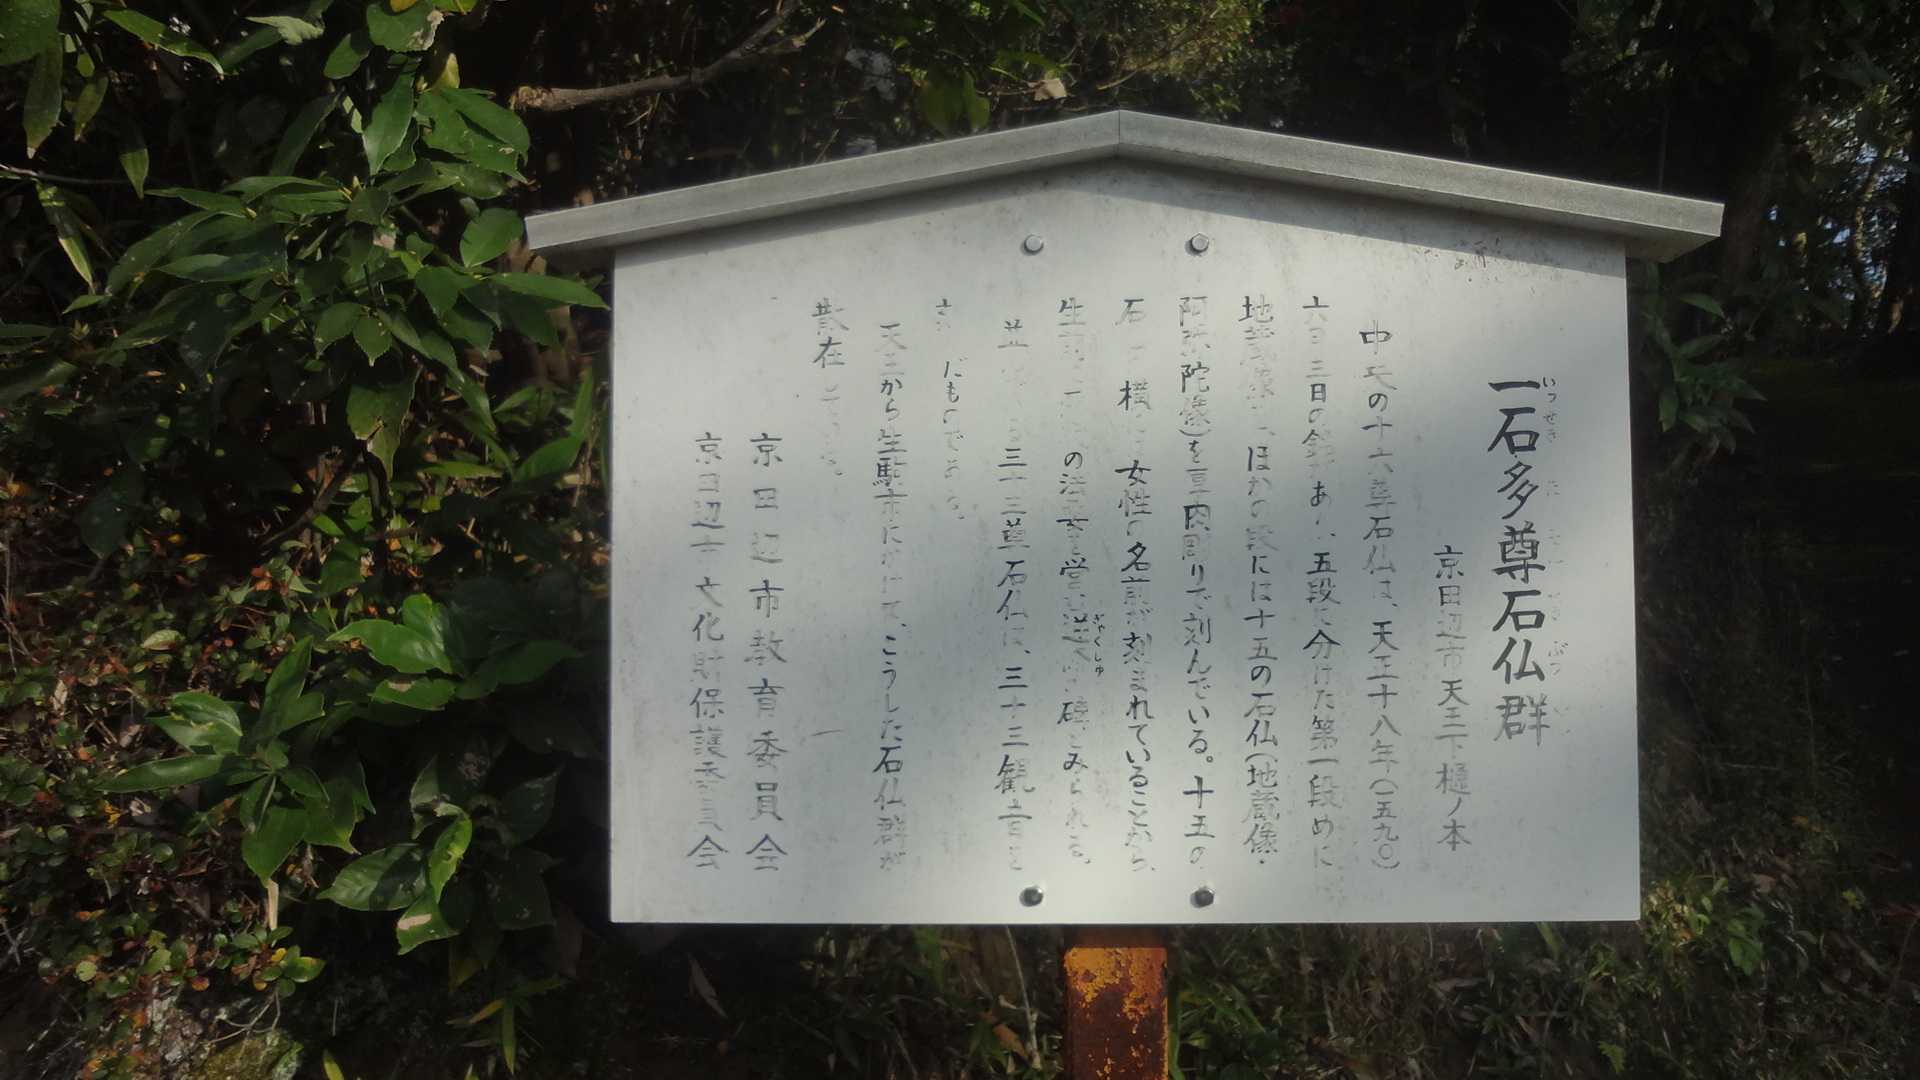 一石多尊石仏群
いっせき た そん せき ぶつ
京田辺市天王下樋ノ本
中央の十六尊石仏は、天正十八年(一五九〇)
六月三日の銘があり、五段に分けた第一段めに
地蔵像を、ほかの段には十五の石仏(地蔵像・
阿弥陀像)を厚肉彫りで刻んでいる。十五の
石 横に 女性の名前が刻まれていることから、
生前 の法要を営む逆修 碑とみられる。
ぎゃくしゅ
並 三十三尊石仏は、三十三観音を
だものである。
天王から生駒市にかけて、こうした石仏群が
散在している。
京田辺市教育委員会
京田辺市文化財保護委員会